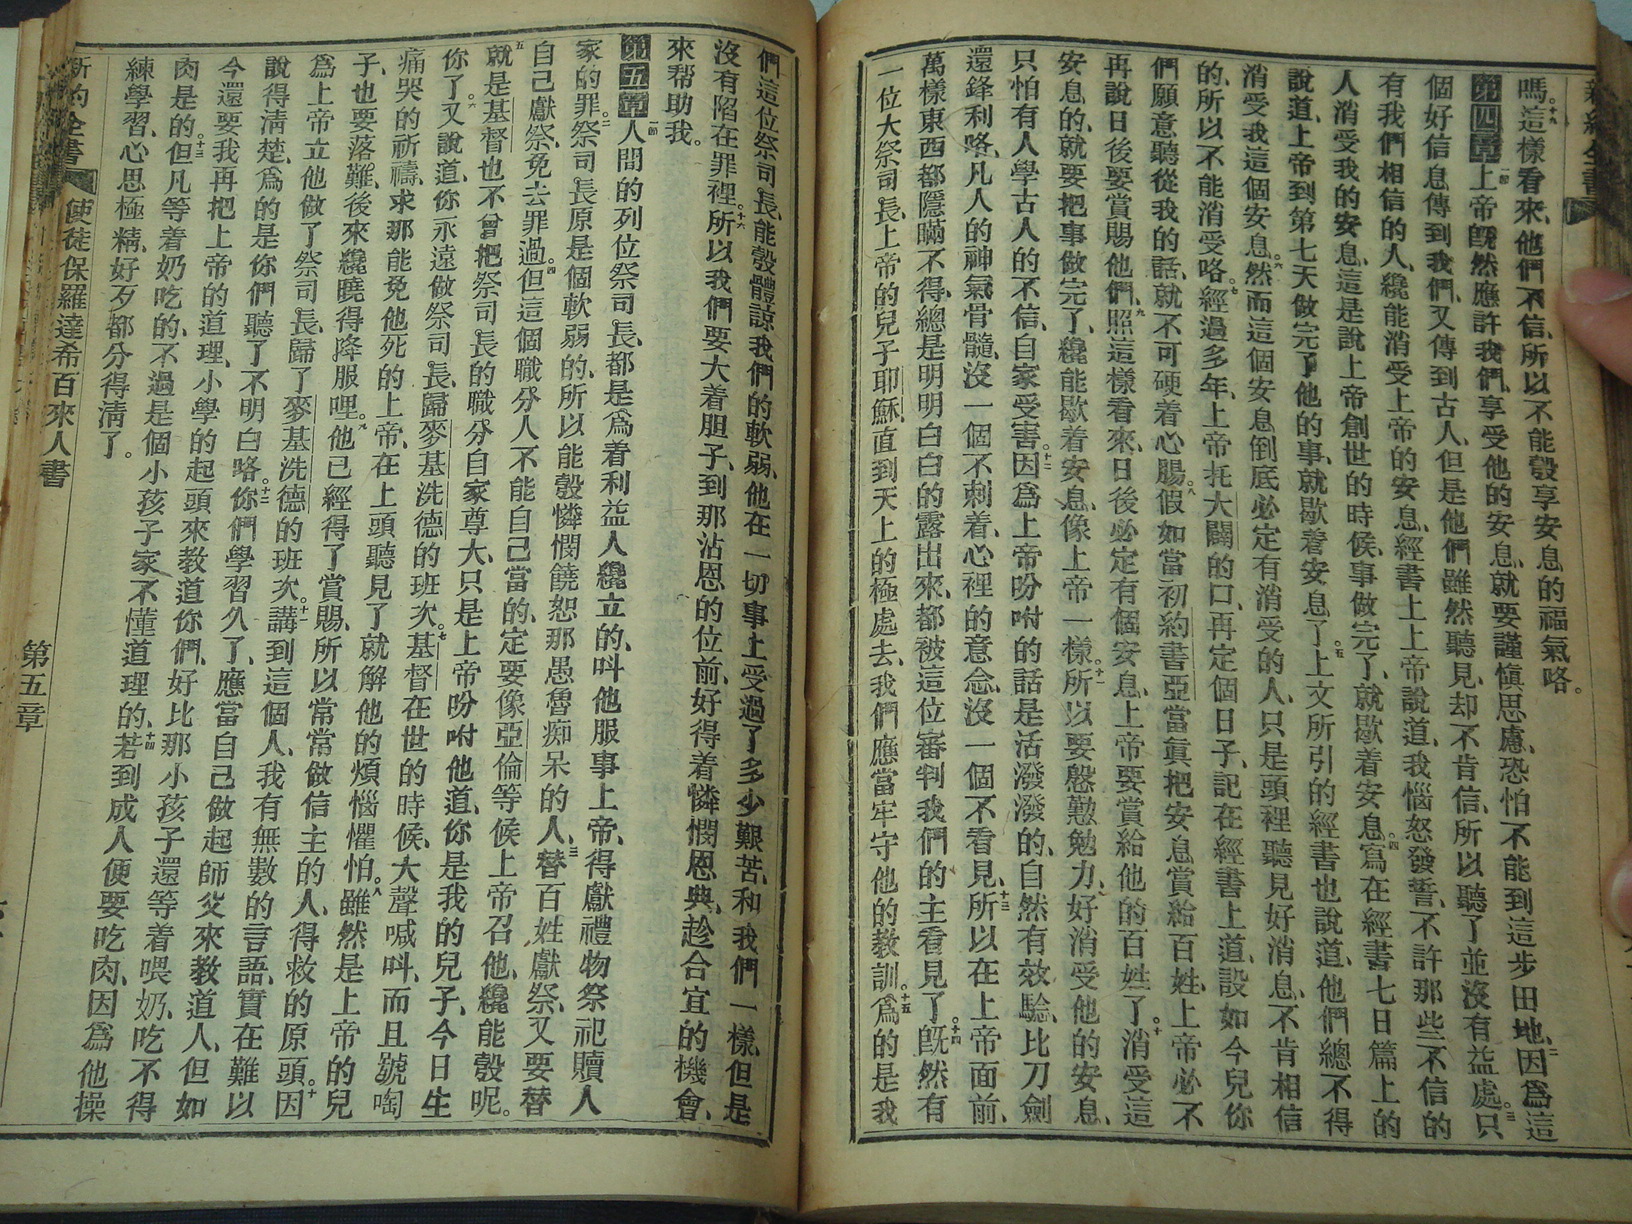 新約全書
嗎。十九這樣看來、他們不信、所以不能彀享安息的福氣咯。
第四章一節上帝旣然應許我們、享受他的安息、就要謹愼思慮、恐怕不能到這步田地、二因爲這
個好信息、傳到我們、又傳到古人、但是他們雖然聽見、却不肯信、所以聽了並沒有益處。三只
有我們相信的人、纔能消受上帝的安息、經書上上帝說道、我惱怒發誓、不許那些不信的
人消受我的安息、這是說上帝創世的時候、事做完了、就歇着安息。四寫在經書七日篇上的
說道、上帝到第七天做完了他的事、就歇着安息了。五上文所引的經書也說道、他們總不得
消受我這個安息。六然而這個安息、到底必定有消受的人、只是頭裡聽見好消息、不肯相信
的、所以不能消受咯。七經過多年、上帝托大闢的口、再定個日子、記在經書上道、設如今兒你
們願意聽從我的話、就不可硬着心腸。八假如當初約書亞當眞把安息賞給百姓、上帝必不
再說日後要賞賜他們。九照這樣看來、日後必定有個安息、上帝要賞給他的百姓了。十消受這
安息的、就要把事做完了、纔能歇着安息、像上帝一樣。十一所以要慇懃勉力、好消受他的安息、
只怕有人學古人的不信、自家受害。十二因爲上帝吩咐的話、是活潑潑的、自然有效驗、比刀劍
還鋒利咯、凡人的神氣骨髓、沒一個不刺着、心裡的意念、沒一個不看見、十三所以在上帝面前、
萬樣東西都隱瞞不得、總是明明白白的露出來、都被這位審判我們的主看見了。十四旣然有
一位大祭司長、上帝的兒子耶穌、直到天上的極處去、我們應當牢守他的教訓。十五爲的是我
們這位祭司長、能彀體諒我們的軟弱、他在一切事上、受過了多少艱苦、和我們一樣、但是
沒有陷在罪裡。十六所以我們要大着胆子、到那沾恩的位前、好得着憐憫恩典、趁合宜的機會、
來帮助我。
第五章一節人間的列位祭司長、都是爲着利益人纔立的、叫他服事上帝、得獻禮物祭祀贖人
家的罪。二祭司長原是個軟弱的、所以能彀憐憫饒恕那愚魯痴呆的人、三替百姓獻祭、又要替
自己獻祭、免去罪過。四但這個職分、人不能自己當的、定要像亞倫等候上帝召他、纔能彀呢。
五就是基督也不曾把祭司長的職分自家尊大、只是上帝吩咐他道、你是我的兒子、今日生
你了。六又說道、你永遠做祭司長、歸麥基洗德的班次。七基督在世的時候、大聲喊叫、而且號啕
痛哭的祈禱、求那能免他死的上帝、在上頭聽見了、就解他的煩惱懼怕。八雖然是上帝的兒
子、也要落難、後來纔曉得降服哩。九他已經得了賞賜、所以常常做信主的人、得救的原頭。十因
爲上帝立他做了祭司長、歸了麥基洗德的班次。十一講到這個人、我有無數的言語、實在難以
說得淸楚、爲的是你們聽了不明白咯。十二你們學習久了、應當自己做起師父來教道人、但如
今還要我再把上帝的道理、小學的起頭來教道你們、好比那小孩子還等着喂奶、吃不得
肉是的。十三但凡等着奶吃的、不過是個小孩子家、不懂道理的、十四若到成人便要吃肉、因爲他操
練學習、心思極精、好歹都分得淸了。
新約全書 使徒保羅達希百來人書 第五章